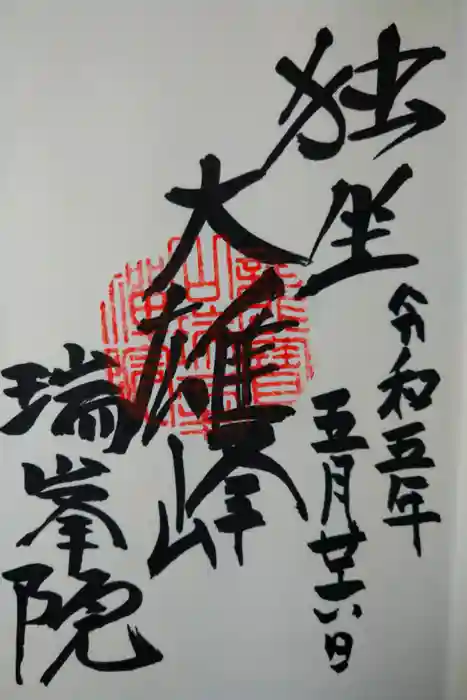 令和五年
五月廿六日
独坐
大雄峰
瑞峯院